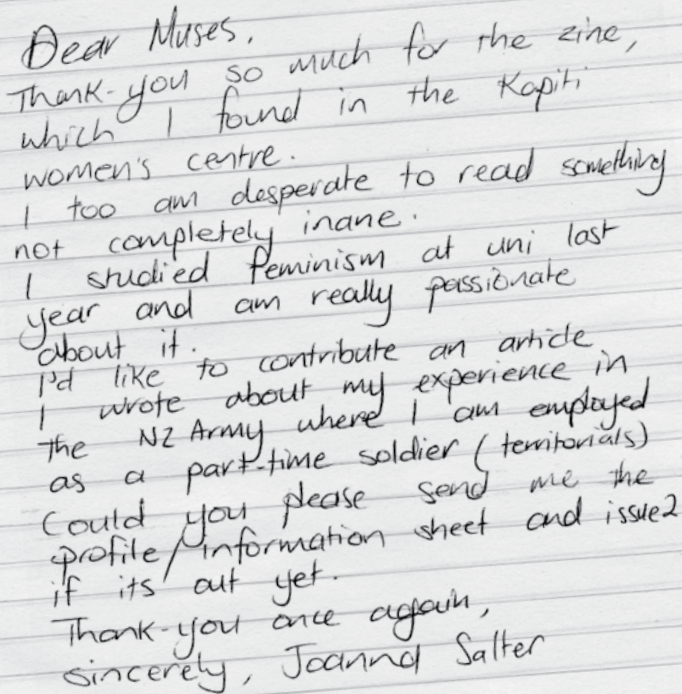 Dear Muses,
Thank-you so much for the zine,
which I found in the Kapiti
women's centre.
I too am desperate to read something
not completely inane.
I studied feminism at uni last
year and am really passionate
about it.
I'd like to contribute an article
I wrote about my experience in
the NZ Army where I am employed
as a part-time soldier (territorials)
Could you please send me the
profile/information sheet and issue 2
if its out yet.
Thank-you once again,
sincerely, Joanna Salter